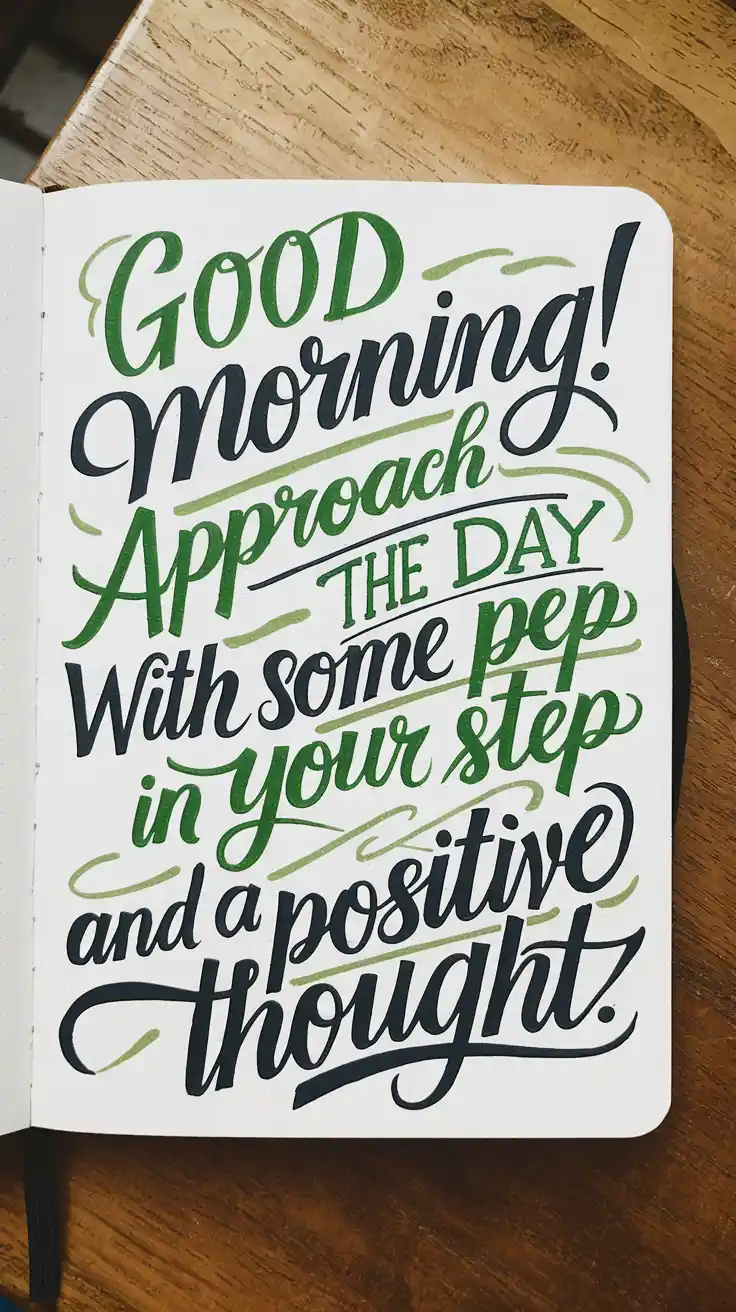 GOOD
Morning!
Approach
THE DAY
With some pep
in your step
and a positive
thought.